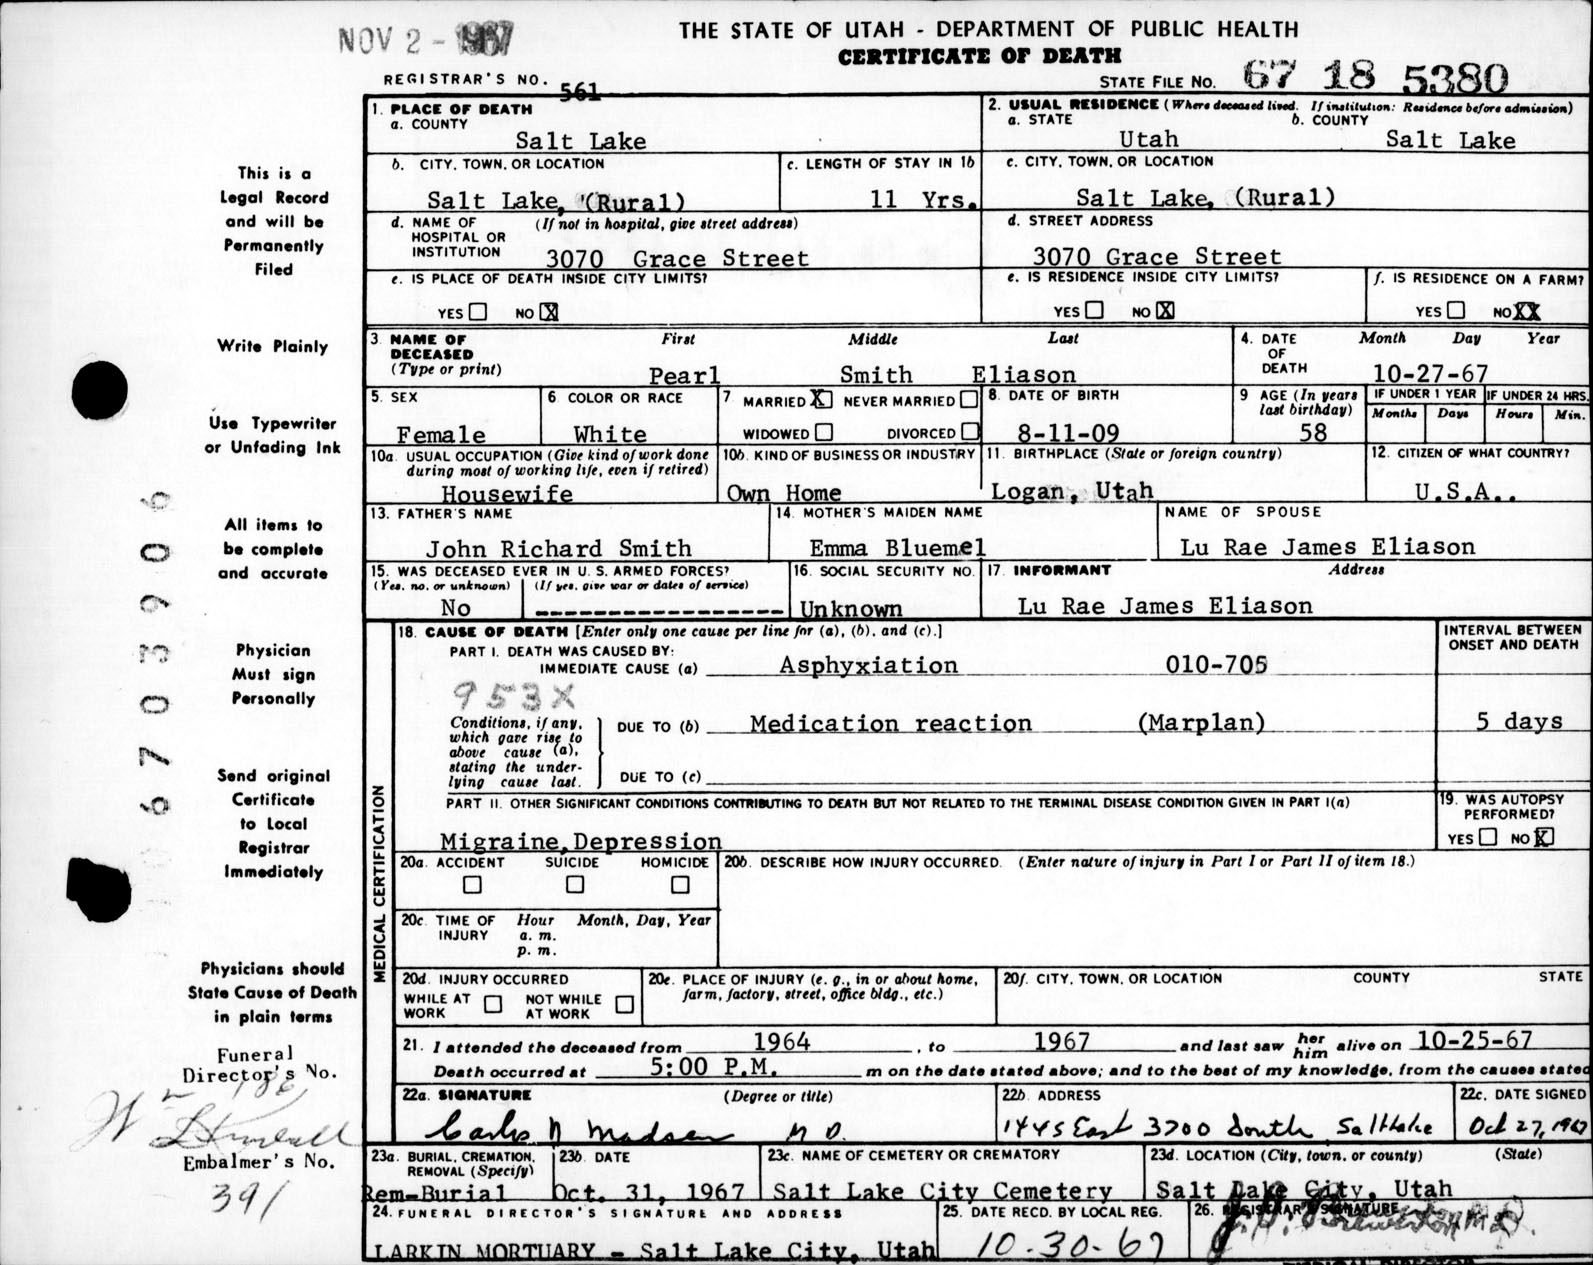 NOV 2 - 1967
THE STATE OF UTAH - DEPARTMENT OF PUBLIC HEALTH
CERTIFICATE OF DEATH
REGISTRAR'S NO. 561
STATE FILE NO. 67 18 5380
This is a
Legal Record
and will be
Permanently
Filed
Write Plainly
Use Typewriter
or Unfading Ink
All items to
be complete
and accurate
Physician
Must sign
Personally
Send original
Certificate
to Local
Registrar
Immediately
Physicians should
State Cause of Death
in plain terms
Funeral
Director's No.
186
Embalmer's No.
391
6703906
1. PLACE OF DEATH
a. COUNTY
Salt Lake
2. USUAL RESIDENCE (Where deceased lived. If institution: Residence before admission)
a. STATE b. COUNTY
Utah Salt Lake
b. CITY, TOWN, OR LOCATION
Salt Lake, (Rural)
c. LENGTH OF STAY IN 1b
11 Yrs.
c. CITY, TOWN, OR LOCATION
Salt Lake, (Rural)
d. NAME OF (If not in hospital, give street address)
HOSPITAL OR
INSTITUTION 3070 Grace Street
d. STREET ADDRESS
3070 Grace Street
e. IS PLACE OF DEATH INSIDE CITY LIMITS?
YES NO X
e. IS RESIDENCE INSIDE CITY LIMITS?
YES NO X
f. IS RESIDENCE ON A FARM?
YES NO XX
3. NAME OF First Middle Last
DECEASED
(Type or print) Pearl Smith Eliason
4. DATE Month Day Year
OF
DEATH 10-27-67
5. SEX
Female
6 COLOR OR RACE
White
7 MARRIED X NEVER MARRIED
WIDOWED DIVORCED
8. DATE OF BIRTH
8-11-09
9 AGE (In years
last birthday)
58
IF UNDER 1 YEAR IF UNDER 24 HRS.
Months Days Hours Min.
10a. USUAL OCCUPATION (Give kind of work done
during most of working life, even if retired)
Housewife
10b. KIND OF BUSINESS OR INDUSTRY
Own Home
11. BIRTHPLACE (State or foreign country)
Logan, Utah
12. CITIZEN OF WHAT COUNTRY?
U.S.A..
13. FATHER'S NAME
John Richard Smith
14. MOTHER'S MAIDEN NAME
Emma Bluemel
NAME OF SPOUSE
Lu Rae James Eliason
15. WAS DECEASED EVER IN U. S. ARMED FORCES?
(Yes, no, or unknown) (If yes, give war or dates of service)
No -----------------
16. SOCIAL SECURITY NO.
Unknown
17. INFORMANT Address
Lu Rae James Eliason
MEDICAL CERTIFICATION
18. CAUSE OF DEATH [Enter only one cause per line for (a), (b), and (c).]
INTERVAL BETWEEN
ONSET AND DEATH
PART I. DEATH WAS CAUSED BY:
IMMEDIATE CAUSE (a) Asphyxiation 010-705
953X
Conditions, if any,
which gave rise to
above cause (a),
stating the under-
lying cause last.
DUE TO (b) Medication reaction (Marplan) 5 days
DUE TO (c)
PART II. OTHER SIGNIFICANT CONDITIONS CONTRIBUTING TO DEATH BUT NOT RELATED TO THE TERMINAL DISEASE CONDITION GIVEN IN PART I(a)
Migraine, Depression
19. WAS AUTOPSY
PERFORMED?
YES NO X
20a. ACCIDENT SUICIDE HOMICIDE
20b. DESCRIBE HOW INJURY OCCURRED. (Enter nature of injury in Part I or Part II of item 18.)
20c. TIME OF Hour Month, Day, Year
INJURY a. m.
p. m.
20d. INJURY OCCURRED
WHILE AT NOT WHILE
WORK AT WORK
20e. PLACE OF INJURY (e. g., in or about home,
farm, factory, street, office bldg., etc.)
20f. CITY, TOWN, OR LOCATION COUNTY STATE
21. I attended the deceased from 1964, to 1967 and last saw her him alive on 10-25-67
Death occurred at 5:00 P.M. m on the date stated above; and to the best of my knowledge, from the causes stated
22a. SIGNATURE (Degree or title)
Carlos N Madsen M D.
22b. ADDRESS
1445 East 3700 South Salt Lake
22c. DATE SIGNED
Oct 27, 1967
23a. BURIAL, CREMATION,
REMOVAL (Specify)
Rem-Burial
23b. DATE
Oct. 31, 1967
23c. NAME OF CEMETERY OR CREMATORY
Salt Lake City Cemetery
23d. LOCATION (City, town, or county) (State)
Salt Lake City, Utah
24. FUNERAL DIRECTOR'S SIGNATURE AND ADDRESS
LARKIN MORTUARY - Salt Lake City, Utah
25. DATE RECD. BY LOCAL REG.
10-30-67
26. REGISTRAR'S SIGNATURE